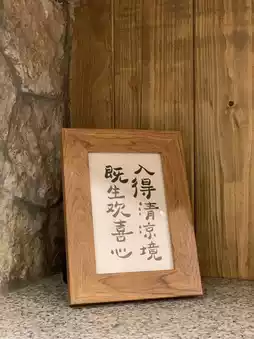 入得清凉境
既生欢喜心